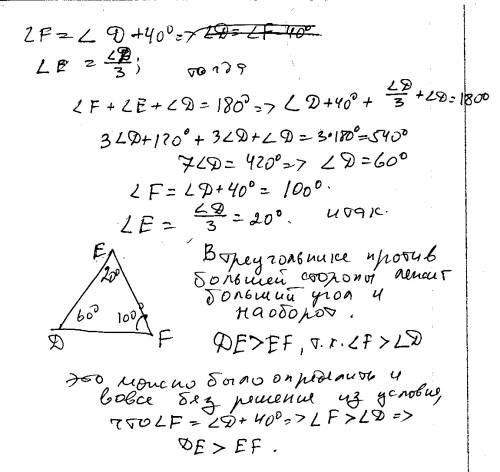 ∠F = ∠D + 40° => ∠D = ∠F - 40°
∠E = ∠D/3; тогда
∠F + ∠E + ∠D = 180° => ∠D + 40° + ∠D/3 + ∠D = 180°
3∠D + 120° + 3∠D + ∠D = 3•180° = 540°
7∠D = 420° => ∠D = 60°
∠F = ∠D + 40° = 100°.
∠E = ∠D/3 = 20°. итак.
E
20°
60° 100°
D F
В треугольнике против
большей стороны лежит
больший угол и
наоборот.
DE > EF, т.к. ∠F > ∠D
Это можно было определить и
вовсе без решения из условия,
что ∠F = ∠D + 40° => ∠F > ∠D =>
DE > EF.